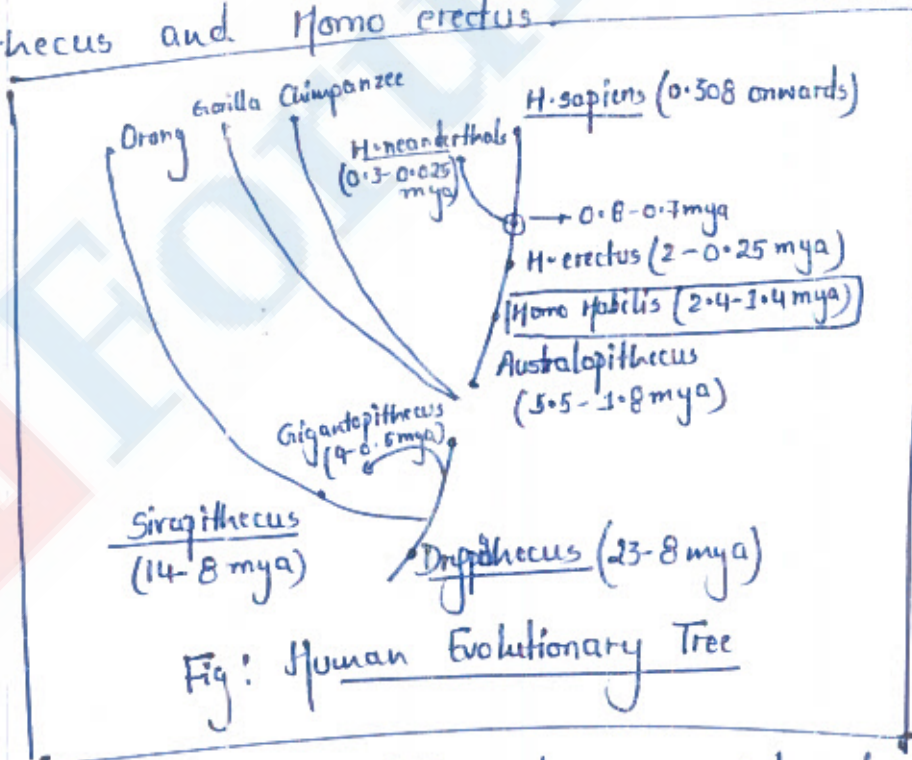 hecus and Homo erectus.
Orang
Gorilla
Chimpanzee
H.sapiens (0.308 onwards)
H.neanderthals
(0.3-0.025
mya)
0.8-0.7mya
H.erectus (2-0.25 mya)
Homo Habilis (2.4-1.4mya)
Australopithecus
(5.5-1.8mya)
Gigantopithecus
mya)
Sivapithecus
(14-8 mya)
Dryopithecus (23-8 mya)
Fig: Human Evolutionary Tree